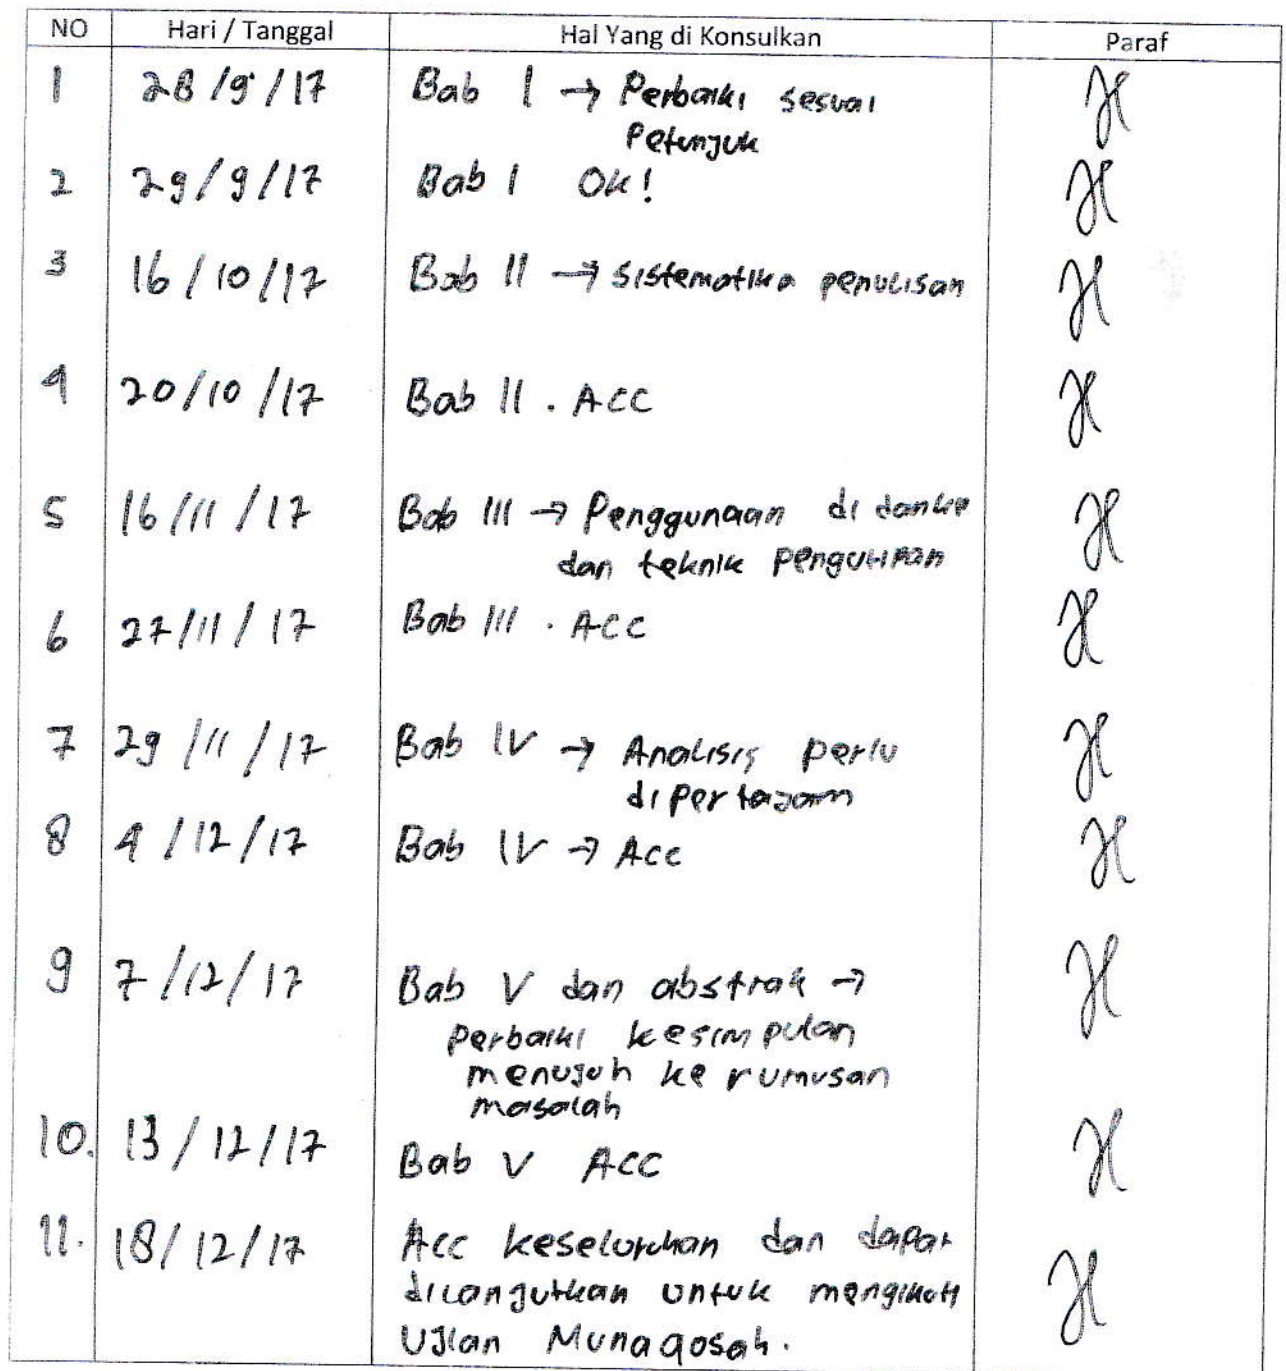 NO Hari / Tanggal Hal Yang di Konsulkan Paraf
1 28/9/17 Bab I → Perbaiki sesuai
petunjuk
2 29/9/17 Bab I Ok!
3 16/10/17 Bab II → sistematika penulisan
4 20/10/17 Bab II . ACC
5 16/11/17 Bab III → Penggunaan di dan ke
dan teknik pengutipan
6 27/11/17 Bab III . ACC
7 29/11/17 Bab IV → Analisis perlu
dipertajam
8 4/12/17 Bab IV → Acc
9 7/12/17 Bab V dan abstrak →
perbaiki kesimpulan
menujuh ke rumusan
masalah
10. 13/12/17 Bab V Acc
11. 18/12/17 Acc keseluruhan dan dapat
dilanjutkan untuk mengikuti
Ujian Munaqosah.